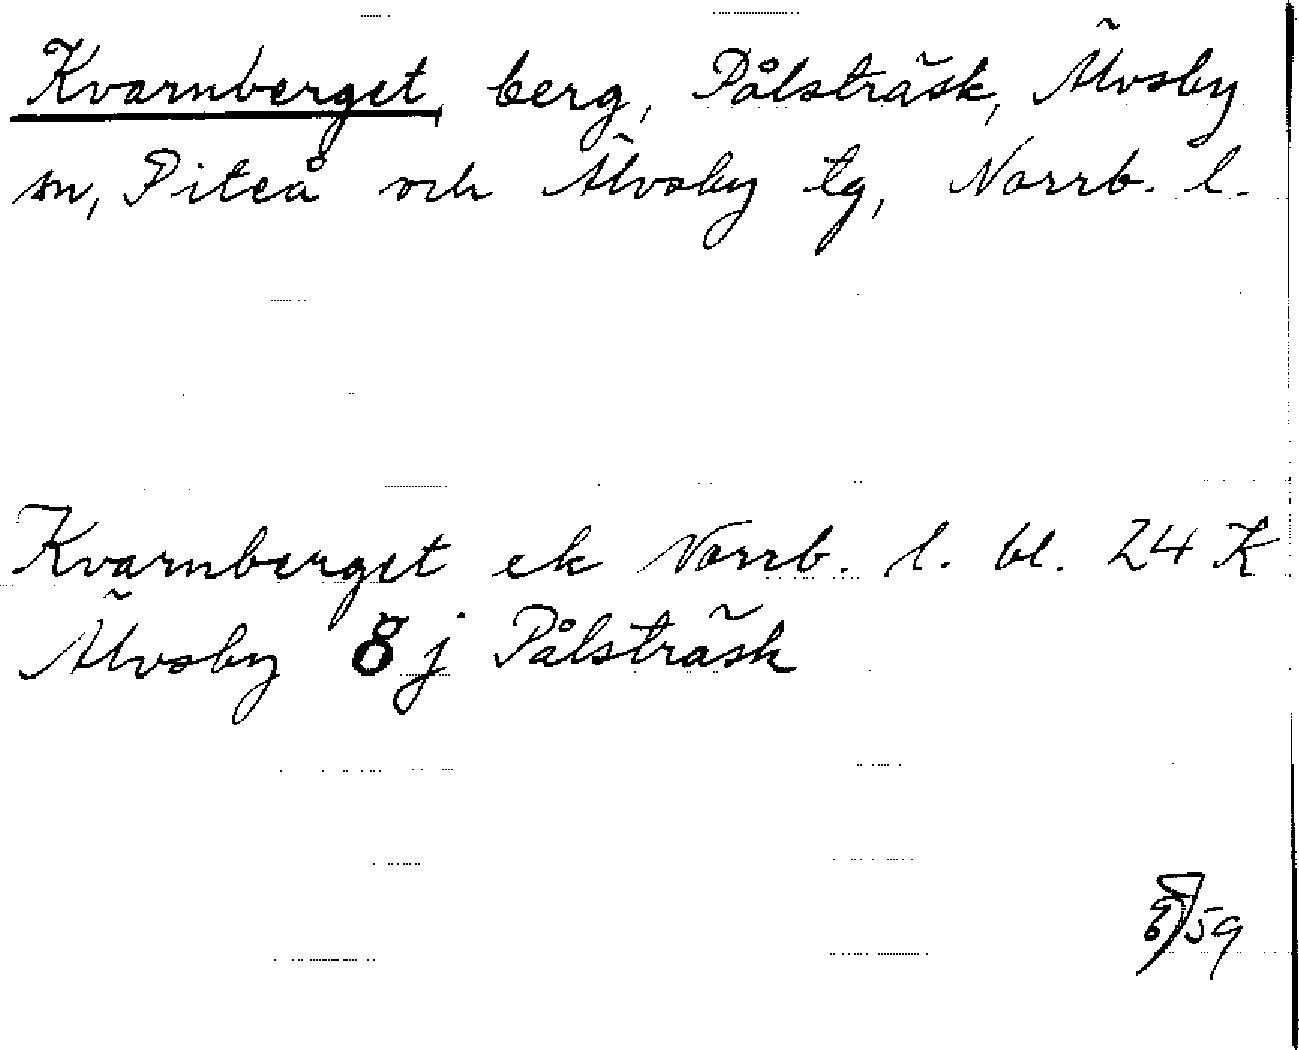 Kvarnberget, berg, Pålsträsk, Älvsby
sn, Piteå och Älvsby tg, Norrb. l.
Kvarnberget ek Norrb. l. bl. 24 K
Älvsby 8 j Pålsträsk
59